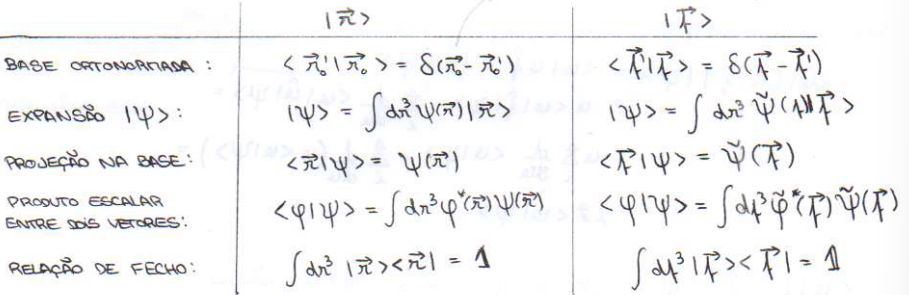 |r⃗> |p⃗>
BASE ORTONORMADA: <r⃗₀'|r⃗₀> = δ(r⃗₀-r⃗₀') <p⃗'|p⃗> = δ(p⃗-p⃗')
EXPANSÃO |ψ>: |ψ> = ∫dr³ ψ(r⃗)|r⃗> |ψ> = ∫dp³ ψ̃(p)|p⃗>
PROJEÇÃO NA BASE: <r⃗|ψ> = ψ(r⃗) <p⃗|ψ> = ψ̃(p⃗)
PRODUTO ESCALAR
ENTRE DOIS VETORES: <φ|ψ> = ∫dr³ φ*(r⃗)ψ(r⃗) <φ|ψ> = ∫dp³ φ̃*(p⃗)ψ̃(p⃗)
RELAÇÃO DE FECHO: ∫dr³ |r⃗><r⃗| = 1 ∫dp³ |p⃗><p⃗| = 1